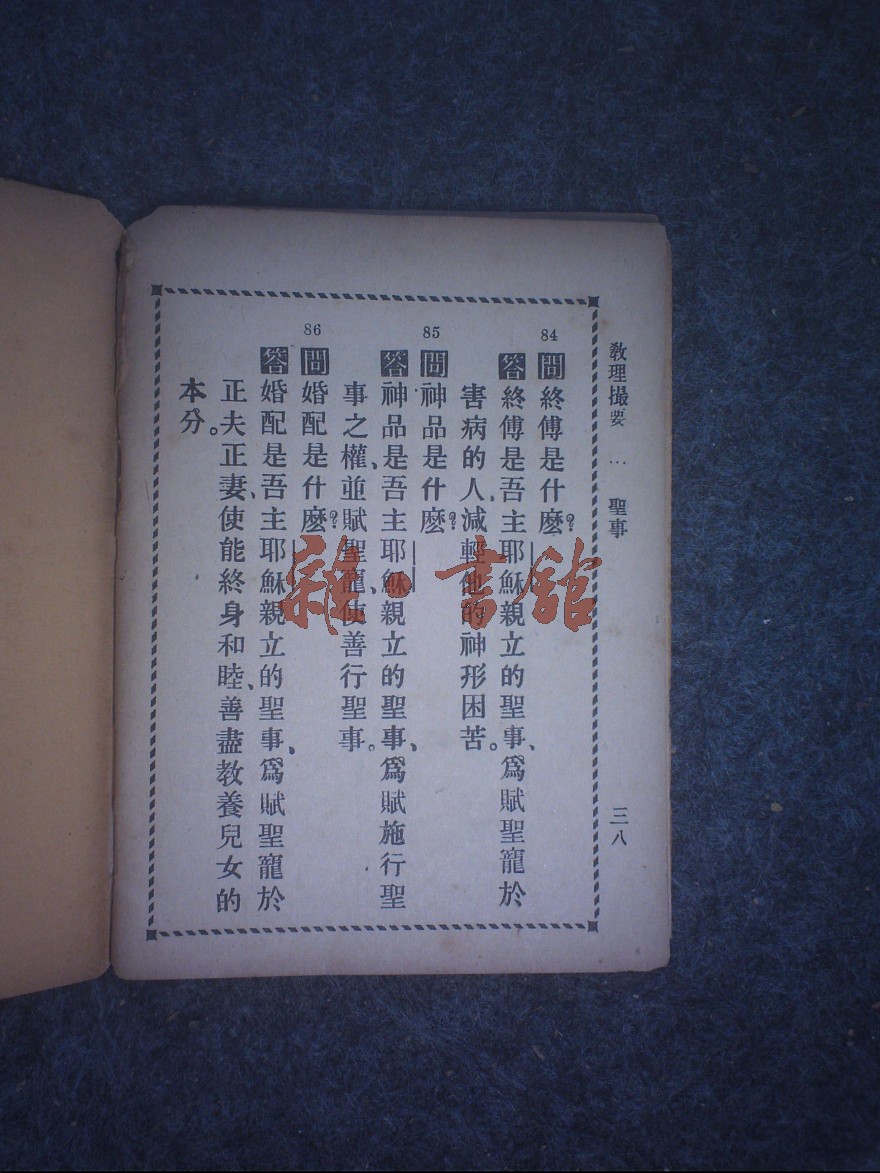 教理撮要 … 聖事 三八
84
問終傅是什麽？
答終傅是吾主耶穌親立的聖事、爲賦聖寵於
害病的人、減輕他的神形困苦。
85
問神品是什麽？
答神品是吾主耶穌親立的聖事、爲賦施行聖
事之權、並賦聖寵、使善行聖事。
86
問婚配是什麽？
答婚配是吾主耶穌親立的聖事、爲賦聖寵於
正夫正妻、使能終身和睦、善盡教養兒女的
本分。
雜·書館